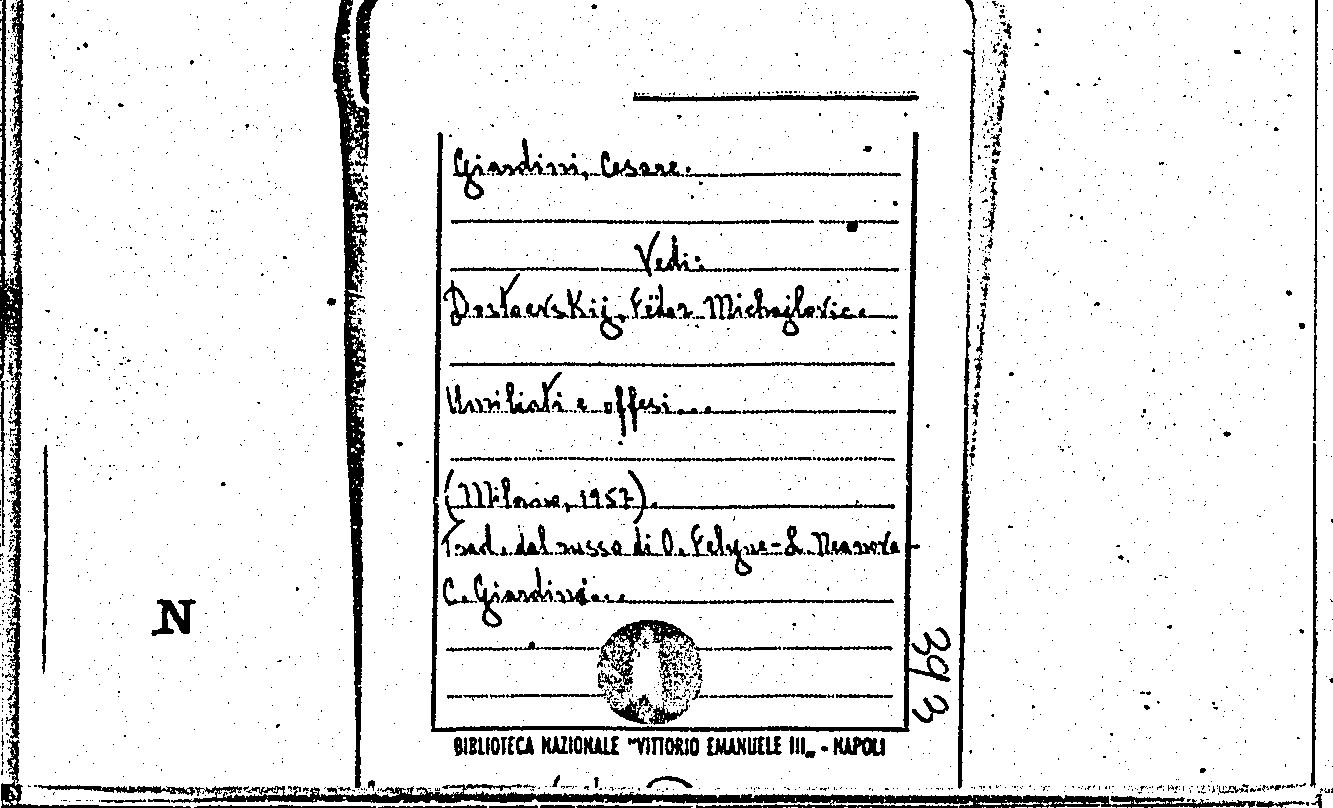 Giardini, Cesare.
Vedi:
Dostoevskij, Fëdor Michajlovic.
Umiliati e offesi...
(Milano, 1957).
Trad. dal russo di O. Felyne-L. Neanova-
C. Giardini...
393
N
BIBLIOTECA NAZIONALE "VITTORIO EMANUELE III„ - NAPOLI